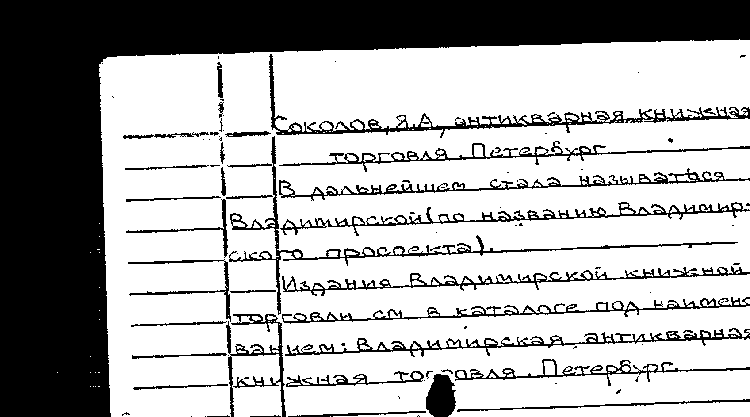 Соколов, Я.А, антикварная книжная
торговля. Петербург
В дальнейшем стала называться
Владимирской (по названию Владимир-
ского проспекта).
Издания Владимирской книжной
торговли см в каталоге под наимено
ванием: Владимирская антикварная
книжная торговля. Петербург.